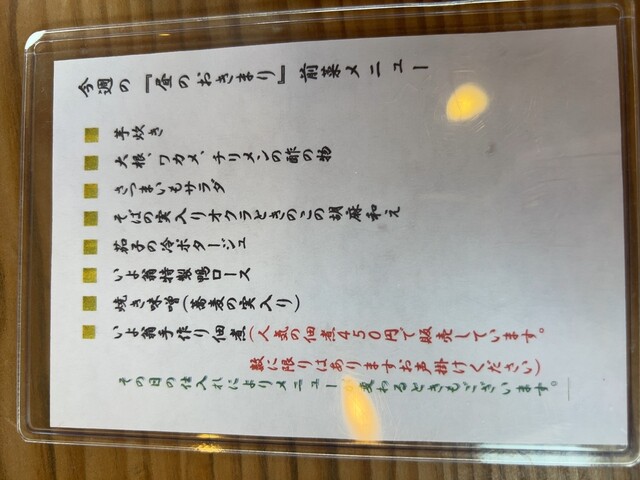 今週の『昼のおきまり』前菜メニュー
■ 芋炊き
■ 大根、ワカメ、チリメンの酢の物
■ さつまいもサラダ
■ そばの実入りオクラときのこの胡麻和え
■ 茄子の冷ポタージュ
■ いよ翁特製鴨ロース
■ 焼き味噌(蕎麦の実入り)
■ いよ翁手作り佃煮(人気の佃煮450円で販売しています。
数に限りはありますお声掛けください)
その日の仕入れによりメニューが変わるときもございます。